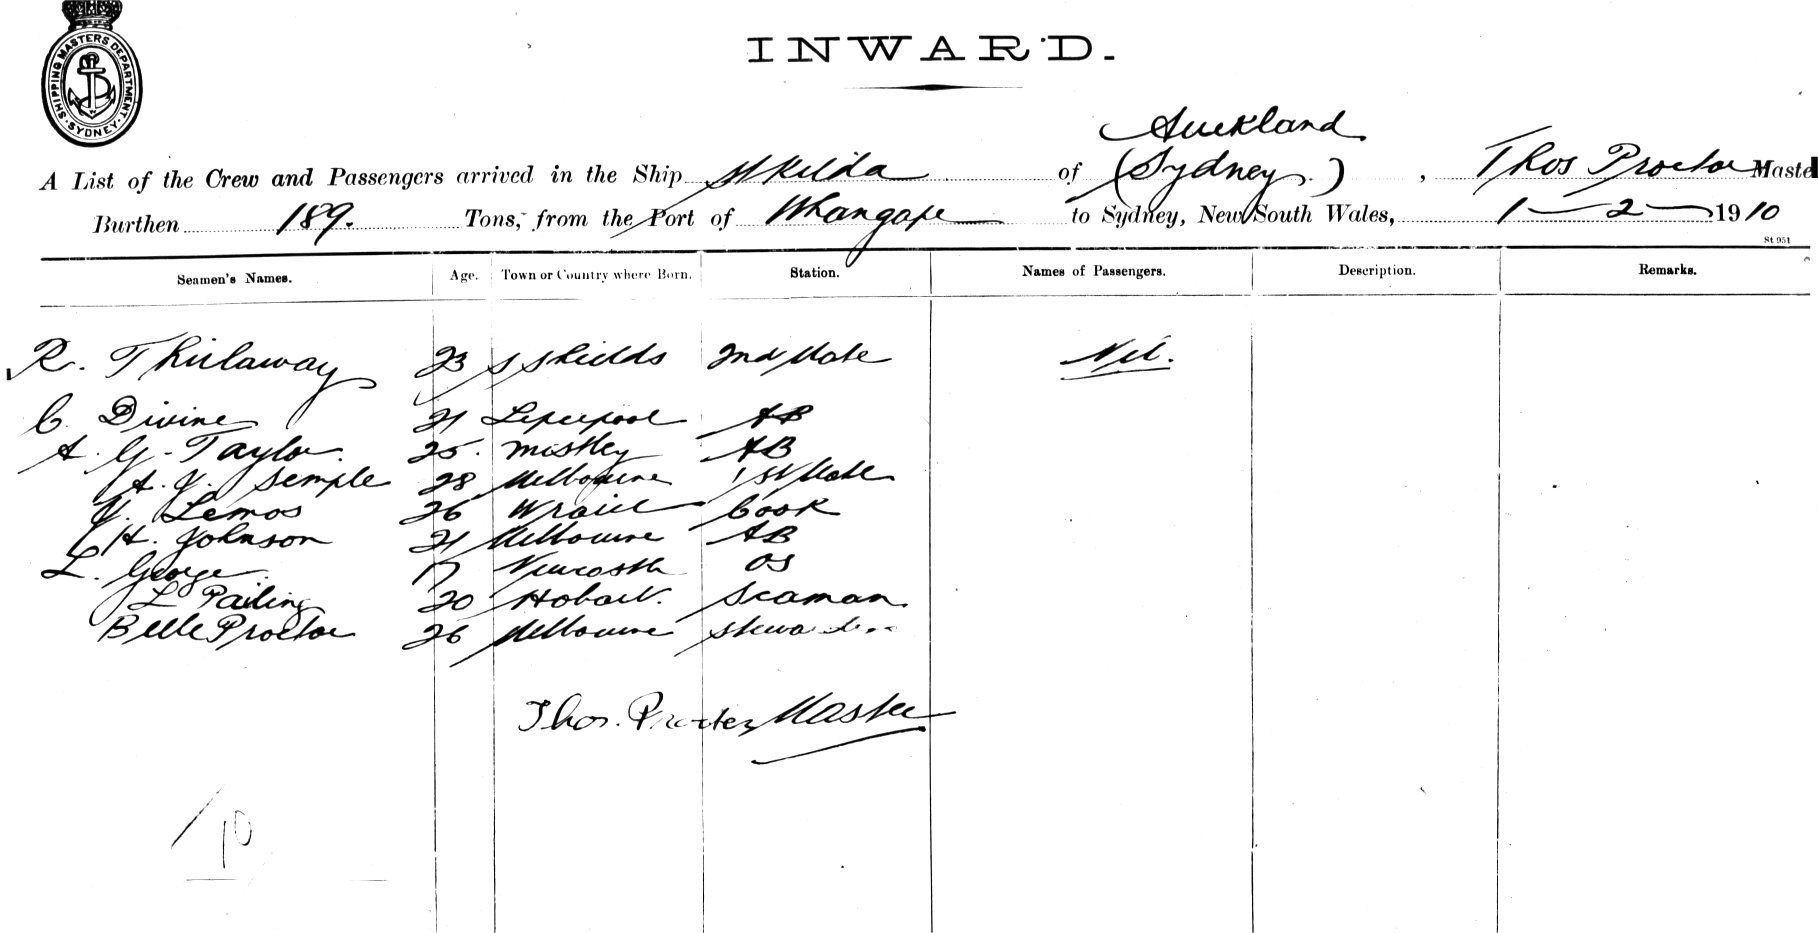 SHIPPING MASTERS DEPARTMENT · SYDNEY ·
INWARD.
Auckland
A List of the Crew and Passengers arrived in the Ship St Kilda of (Sydney.) , Thos Proctor Maste
Burthen 189. Tons, from the Port of Whangape to Sydney, New South Wales, 1-2-1910
St 951
Seamen's Names. Age. Town or Country where Born. Station. Names of Passengers. Description. Remarks.
R. Thirlaway 23 S Shields 2nd Mate Nil.
C. Divine 21 Liverpool AB
A. G. Taylor. 25. Mistley AB
A. J. Semple 28 Melbourne 1st Mate
J. Lemos 26 Cook
H. Johnson 21 Melbourne AB
L. George 17 Newcastle OS
L Pailing 20 Hobart. Seaman
Belle Proctor 26 Melbourne
Thos. Procter, Master
10